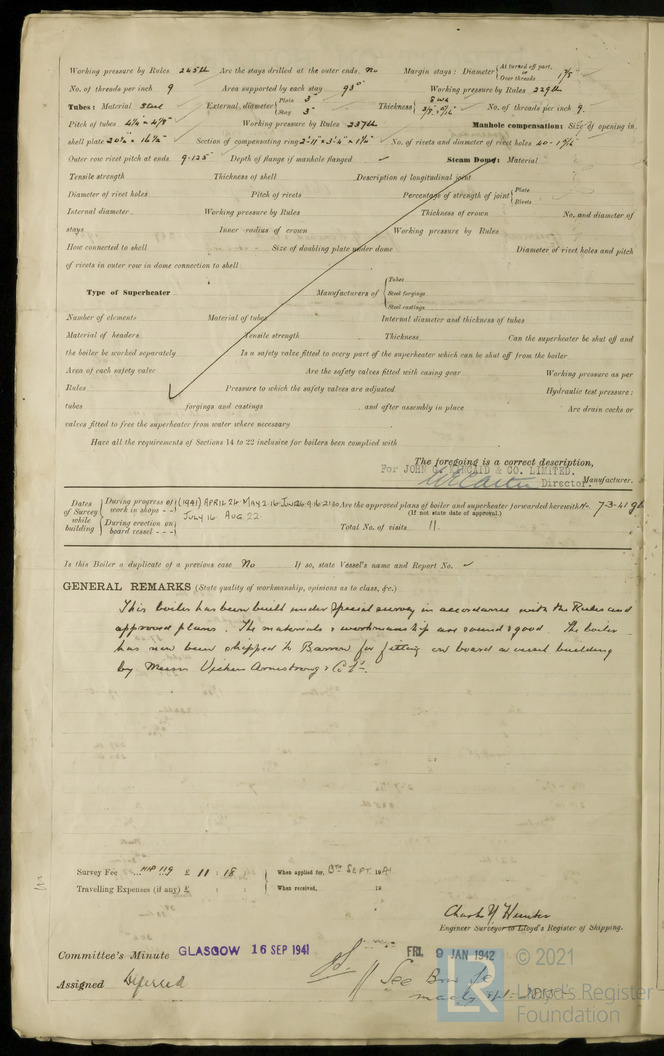 Working pressure by Rules 245 lb Are the stays drilled at the outer ends No Margin stays: Diameter { At turned off part, or Over threads 1 7/8"
No. of threads per inch 9 Area supported by each stay 93" Working pressure by Rules 229 lb
Tubes: Material Steel External diameter { Plain 3" Stay 3" Thickness { 8 WG No. of threads per inch 9.
Pitch of tubes Working pressure by Rules 237 lb Manhole compensation: Size of opening in
shell plate Section of compensating ring No. of rivets and diameter of rivet holes
Outer row rivet pitch at ends 9.125 Depth of flange if manhole flanged ✓ Steam Dome: Material
Tensile strength Thickness of shell Description of longitudinal joint
Diameter of rivet holes Pitch of rivets Percentage of strength of joint { Plate Rivets
Internal diameter Working pressure by Rules Thickness of crown No. and diameter of
stays Inner radius of crown Working pressure by Rules
How connected to shell Size of doubling plate under dome Diameter of rivet holes and pitch
of rivets in outer row in dome connection to shell
Type of Superheater Manufacturers of { Tubes Steel forgings Steel castings
Number of elements Material of tubes Internal diameter and thickness of tubes
Material of headers Tensile strength Thickness Can the superheater be shut off and
the boiler be worked separately Is a safety valve fitted to every part of the superheater which can be shut off from the boiler
Area of each safety valve Are the safety valves fitted with easing gear Working pressure as per
Rules Pressure to which the safety valves are adjusted Hydraulic test pressure:
tubes forgings and castings and after assembly in place Are drain cocks or
valves fitted to free the superheater from water where necessary
Have all the requirements of Sections 14 to 22 inclusive for boilers been complied with
The foregoing is a correct description,
For JOHN G. KINCAID & CO. LIMITED.
Director. Manufacturer.
Dates of Survey while building { During progress of work in shops - - } (1941) APRIL 24 MAY 2.16 Are the approved plans of boiler and superheater forwarded herewith 7-3-41
(If not state date of approval.)
{ During erection on board vessel - - - } JULY 16 AUG 22 Total No. of visits 11.
Is this Boiler a duplicate of a previous case No If so, state Vessel's name and Report No. ✓
GENERAL REMARKS (State quality of workmanship, opinions as to class, &c.)
This boiler has been built under Special survey in accordance with the Rules and
approved plans. The materials & workmanship are sound & good. The boiler
has now been shipped to Barrow for fitting on board a vessel building
by Messrs Vickers Armstrong & Co Ld.
Survey Fee £ 11 : 18 When applied for, 8th SEPT. 1941
Travelling Expenses (if any) £ : : When received, 19
Engineer Surveyor to Lloyd's Register of Shipping.
Committee's Minute GLASGOW 16 SEP 1941 FRI. 9 JAN 1942
Assigned Deferred See
© 2021
LR Lloyd's Register
Foundation